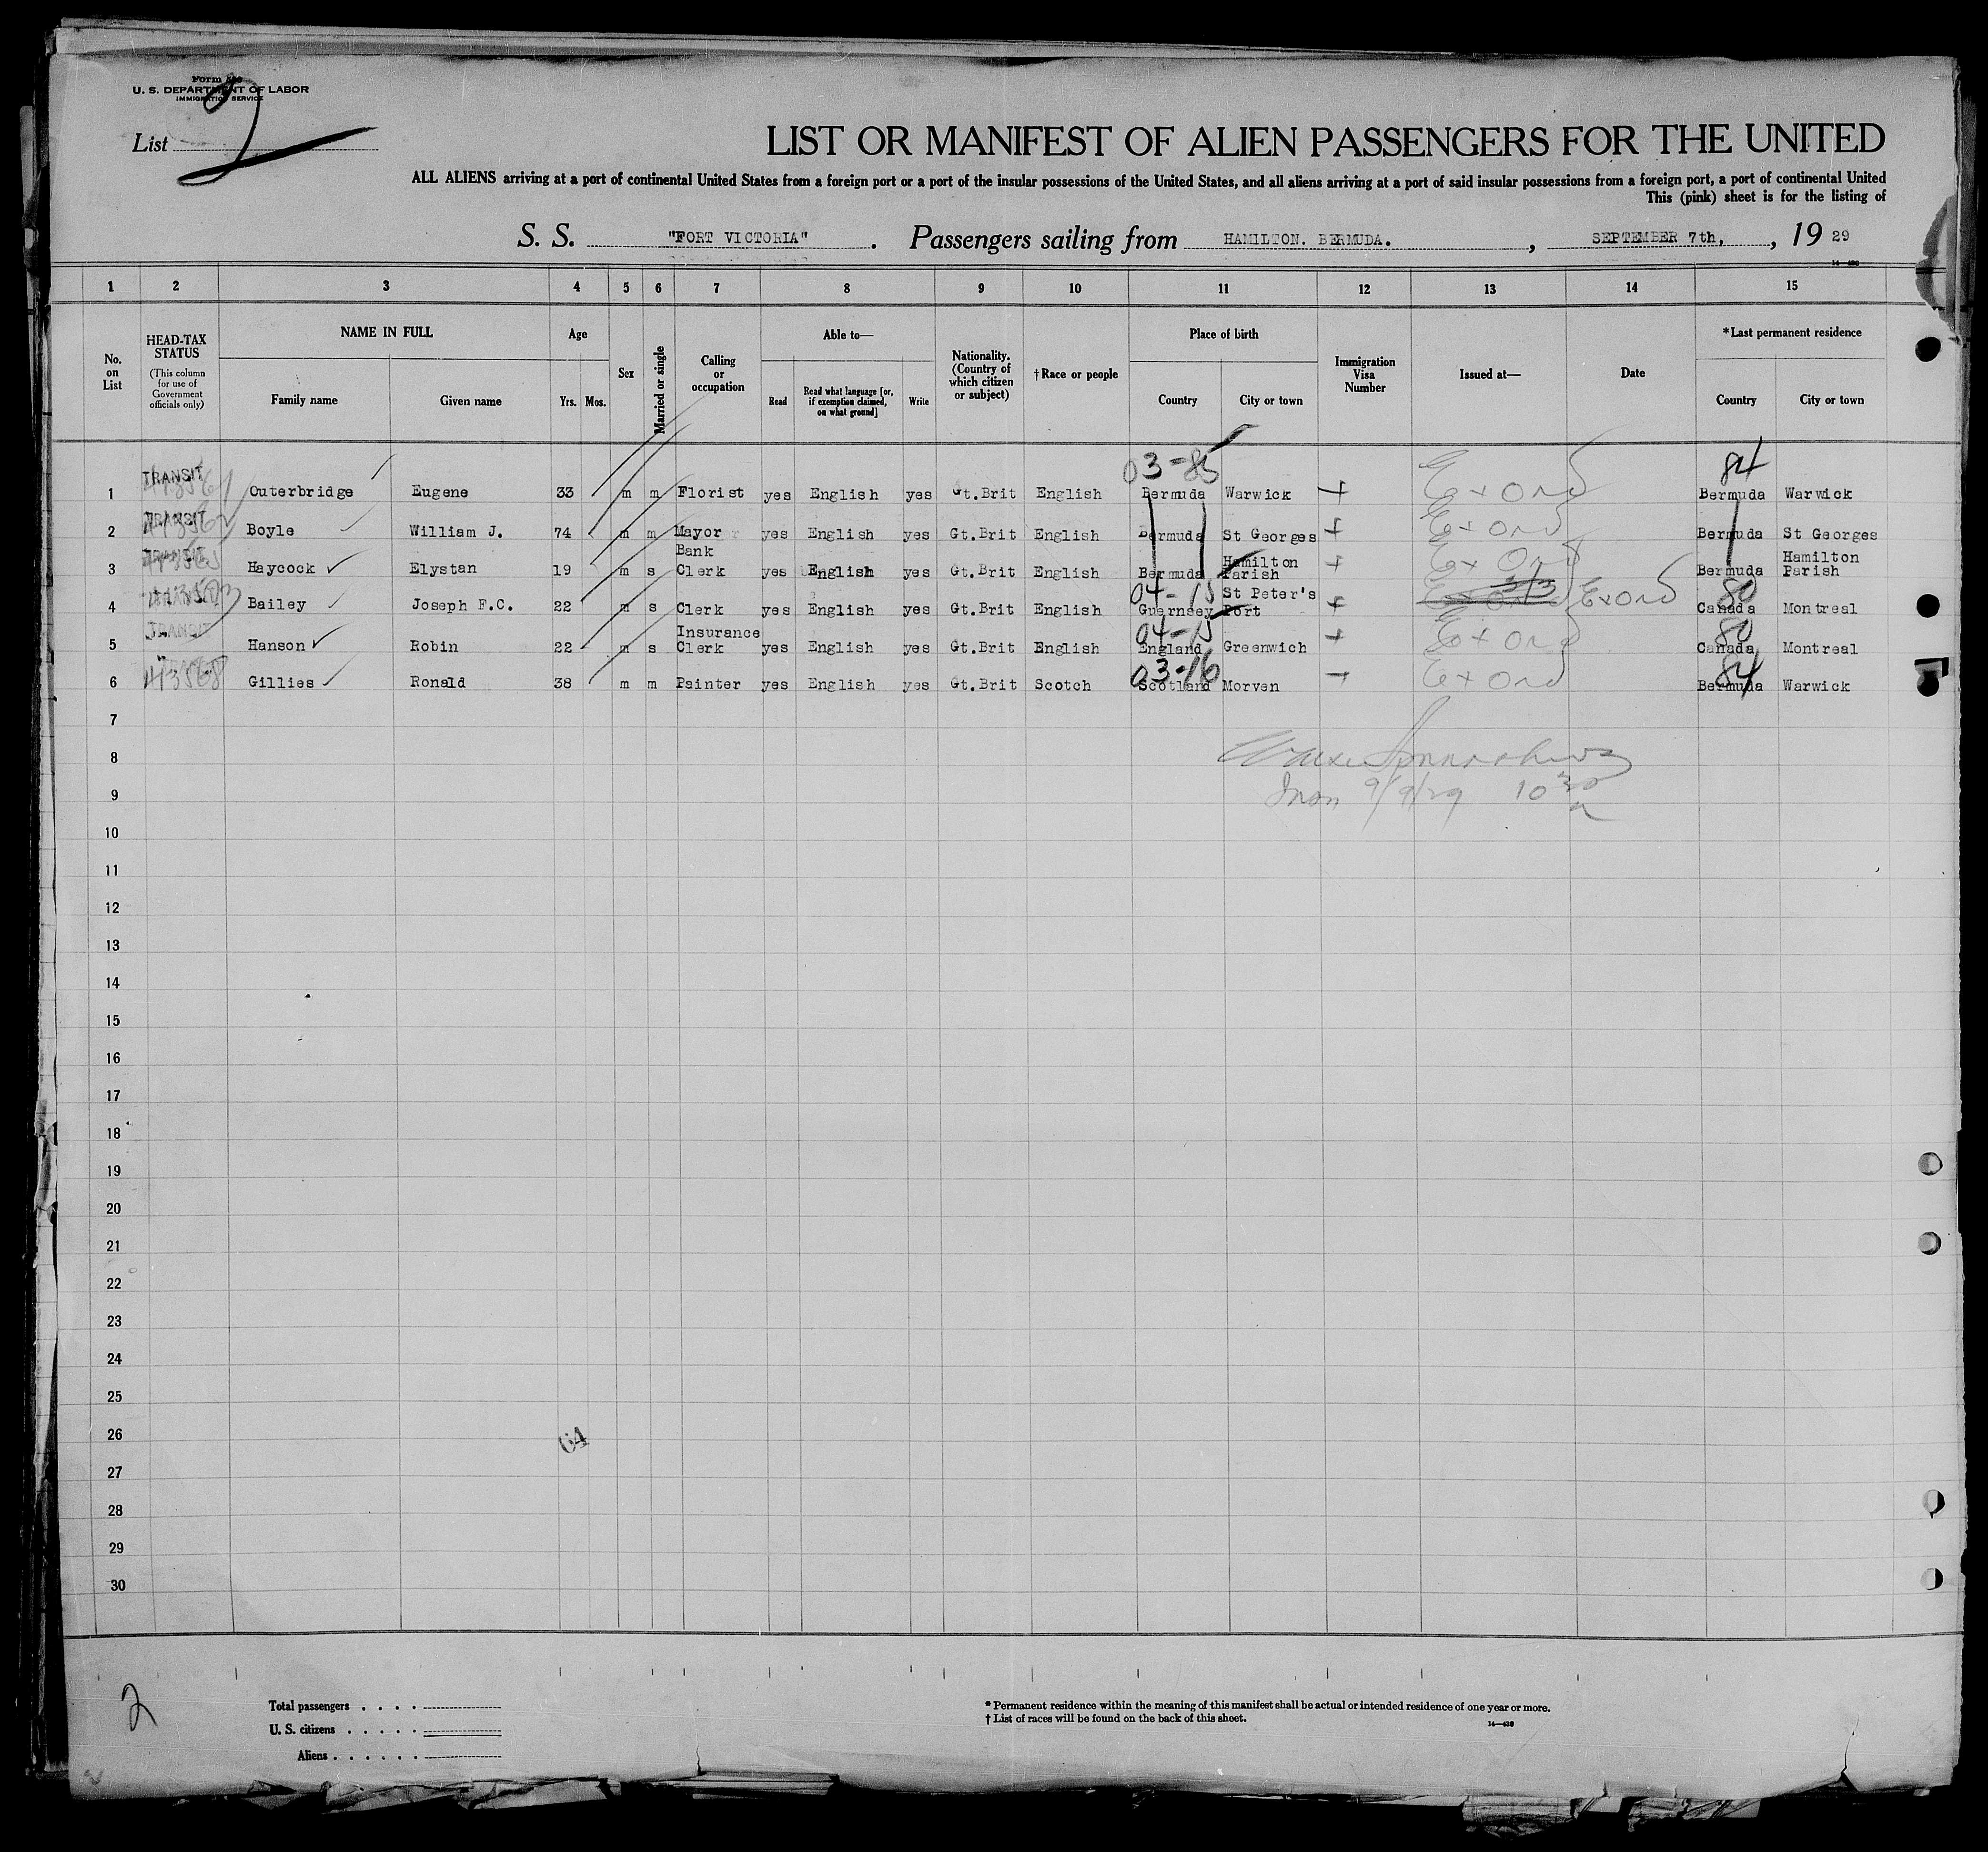 Form 500
U. S. DEPARTMENT OF LABOR
IMMIGRATION SERVICE
List 2
LIST OR MANIFEST OF ALIEN PASSENGERS FOR THE UNITED
ALL ALIENS arriving at a port of continental United States from a foreign port or a port of the insular possessions of the United States, and all aliens arriving at a port of said insular possessions from a foreign port, a port of continental United
This (pink) sheet is for the listing of
S. S. "FORT VICTORIA" . Passengers sailing from HAMILTON. BERMUDA. , SEPTEMBER 7th, , 19 29
1 2 3 4 5 6 7 8 9 10 11 12 13 14 15
No. on List
HEAD-TAX STATUS (This column for use of Government officials only)
NAME IN FULL Family name Given name
Age Yrs. Mos.
Sex
Married or single
Calling or occupation
Able to— Read Read what language [or, if exemption claimed, on what ground] Write
Nationality. (Country of which citizen or subject)
†Race or people
Place of birth Country City or town
Immigration Visa Number
Issued at—
Date
*Last permanent residence Country City or town
03-85 84
1 TRANSIT Outerbridge Eugene 33 m m Florist yes English yes Gt.Brit English Bermuda Warwick Ex Ord Bermuda Warwick
2 TRANSIT Boyle William J. 74 m m Mayor yes English yes Gt.Brit English Bermuda St Georges Ex Ord Bermuda St Georges
3 TRANSIT Haycock Elystan 19 m s Bank Clerk yes English yes Gt.Brit English Bermuda Hamilton Parish Ex Ord Bermuda Hamilton Parish
04-15 80
4 Bailey Joseph F.C. 22 m s Clerk yes English yes Gt.Brit English Guernsey St Peter's Port Ex Ord Canada Montreal
04-15 80
5 TRANSIT Hanson Robin 22 m s Insurance Clerk yes English yes Gt.Brit English England Greenwich Ex Ord Canada Montreal
03-16 84
6 Gillies Ronald 38 m m Painter yes English yes Gt.Brit Scotch Scotland Morven Ex Ord Bermuda Warwick
7
8
9 9/9/29 10 30
10
11
12
13
14
15
16
17
18
19
20
21
22
23
24
25
26
64
27
28
29
30
2
Total passengers . . . .
U. S. citizens . . . . .
Aliens . . . . . .
* Permanent residence within the meaning of this manifest shall be actual or intended residence of one year or more.
† List of races will be found on the back of this sheet.
14—430